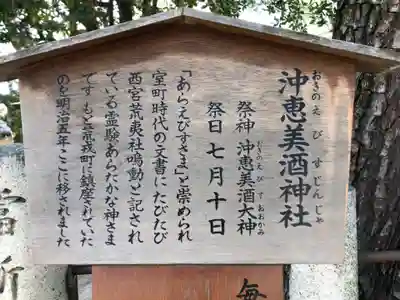 沖恵美酒神社
おきのえびすじんじゃ
祭神 沖恵美酒大神
おきのえびすおおかみ
祭日 七月十日
「あらえびすさま」と崇められ
室町時代の文書にたびたび
西宮荒夷社鳴動と記され
ている霊験あらたかな神さま
です もと荒戎町に鎮座されていた
のを明治五年ここに移されました
毎